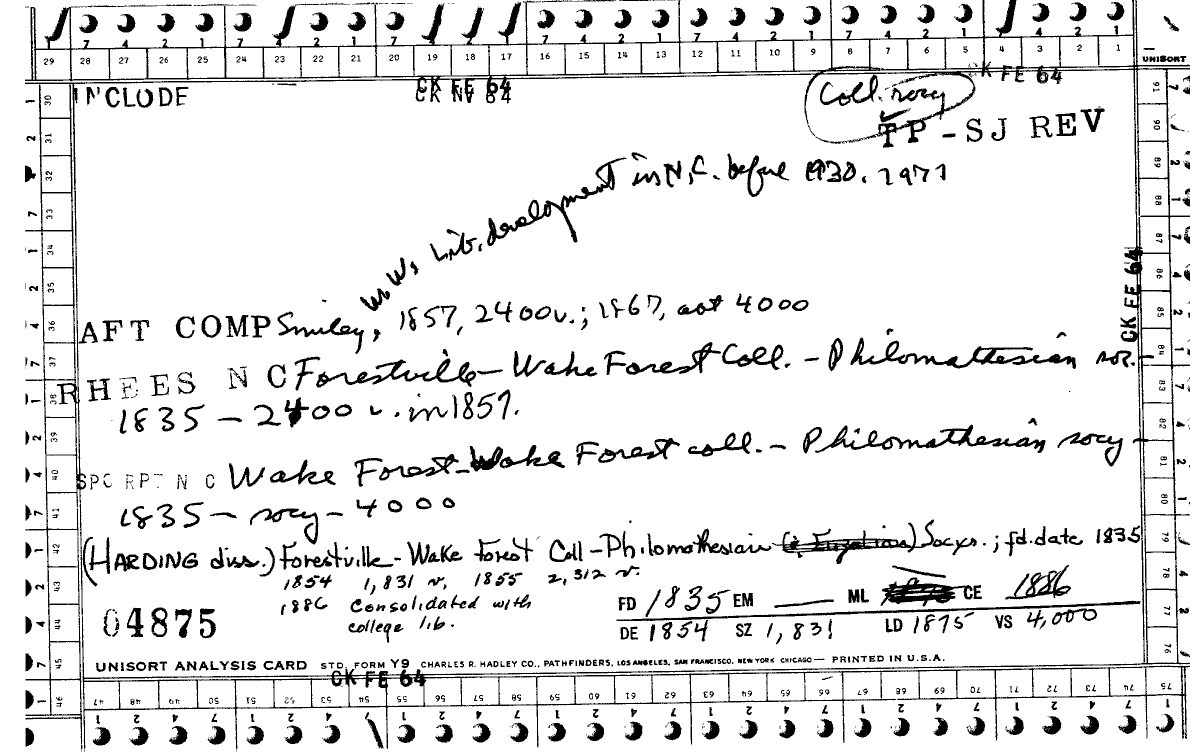 7 4 2 1 7 4 2 1 7 4 2 1 7 4 2 1 7 4 2 1 7 4 2 1 7 4 2 1
29 28 27 26 25 24 23 22 21 20 19 18 17 16 15 14 13 12 11 10 9 8 7 6 5 4 3 2 1
UNISORT
INCLUDE
CK FE 64
CK NV 64
CK FE 64
Coll. socy
TP - SJ REV
W. W. Lib. development in N.C. before 1930. 1971
CK FE 64
AFT COMP Smiley, 1857, 2400v.; 1867, abt 4000
RHEES N C Forestville - Wake Forest Coll. - Philomathesian soc.
1835 - 2400 v. in 1857.
SPC RPT N C Wake Forest - Wake Forest coll. - Philomathesian socy -
1835 - socy - 4000
(HARDING diss.) Forestville - Wake Forest Coll - Philomathesian (& Euzelian) Socys.; fd. date 1835
1854 1,831 v, 1855 2,312 v.
1886 Consolidated with
college lib.
04875
FD 1835 EM — ML CE 1886
DE 1854 SZ 1,831 LD 1875 VS 4,000
UNISORT ANALYSIS CARD STD. FORM Y9 CHARLES R. HADLEY CO., PATHFINDERS, LOS ANGELES, SAN FRANCISCO, NEW YORK CHICAGO — PRINTED IN U.S.A.
CK FE 64
47 48 49 50 51 52 53 54 55 56 57 58 59 60 61 62 63 64 65 66 67 68 69 70 71 72 73 74 75